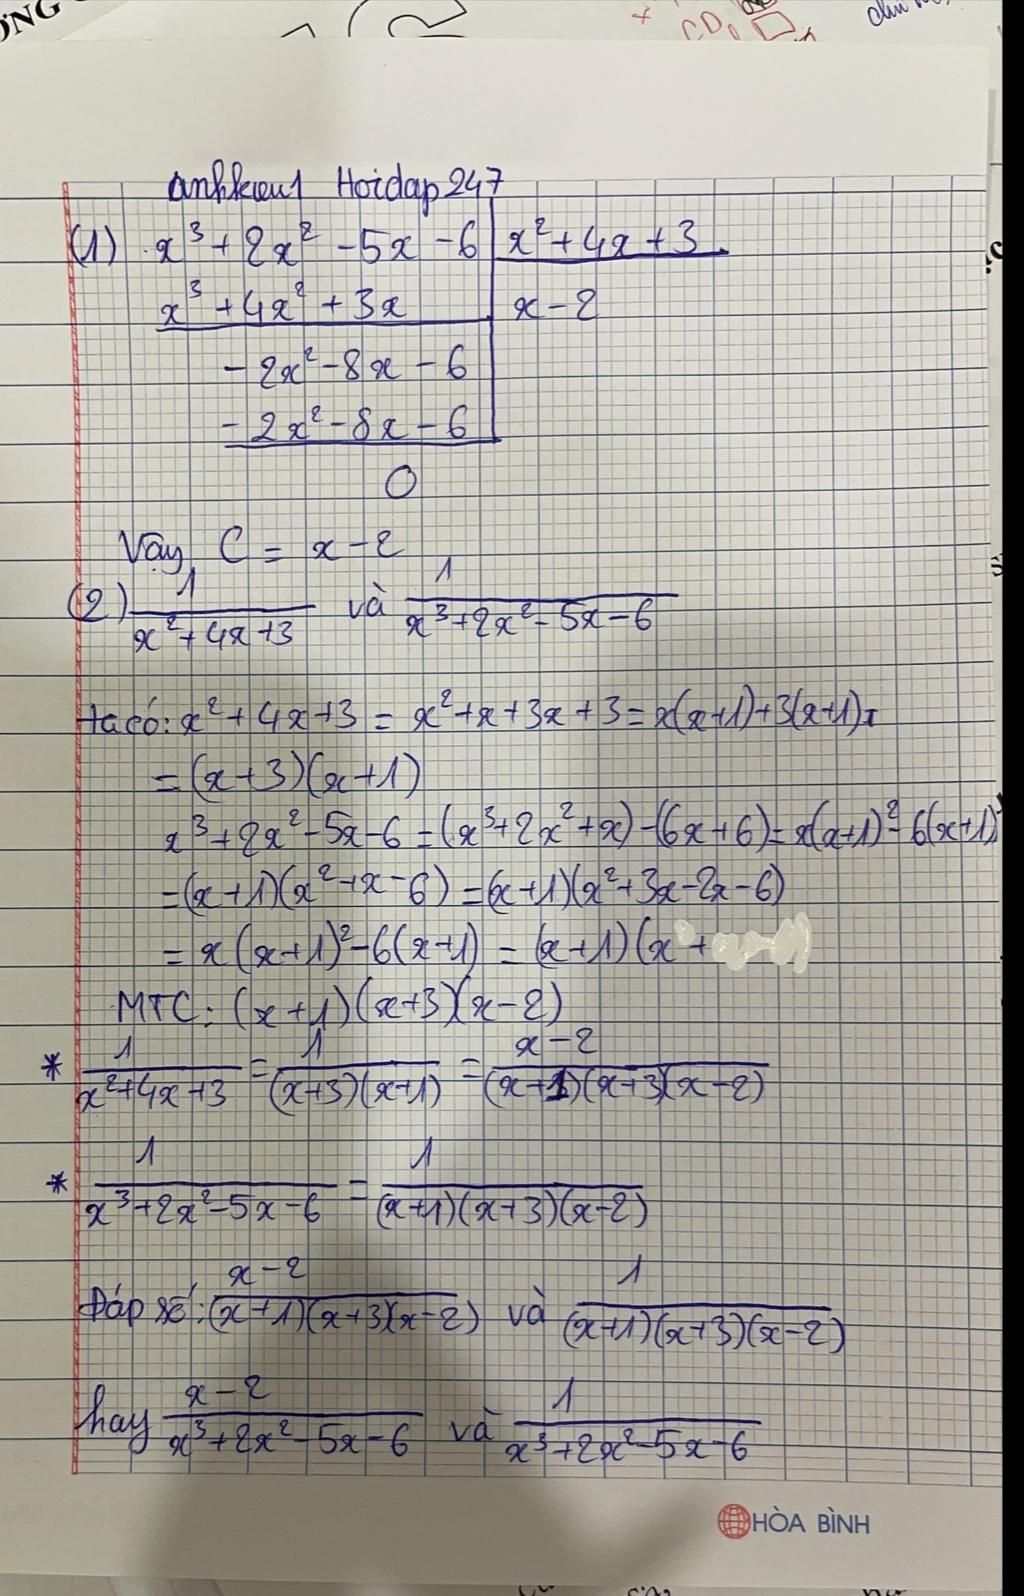 anhkeu1 Hoidap247
(1) x³ + 2x² - 5x - 6 | x² + 4x + 3
x³ + 4x² + 3x | x - 2
- 2x² - 8x - 6
- 2x² - 8x - 6
0
Vậy C = x - 2
(2) 1/(x² + 4x + 3) và 1/(x³ + 2x² - 5x - 6)
Ta có: x² + 4x + 3 = x² + x + 3x + 3 = x(x+1) + 3(x+1) =
= (x+3)(x+1)
x³ + 2x² - 5x - 6 = (x³ + 2x² + x) - (6x + 6) = x(x+1)² - 6(x+1)
= (x+1)(x² + x - 6) = (x+1)(x² + 3x - 2x - 6)
= x(x+1)² - 6(x+1) = (x+1)(x² +
MTC: (x+1)(x+3)(x-2)
* 1/(x² + 4x + 3) = 1/((x+3)(x+1)) = (x-2)/((x+1)(x+3)(x-2))
* 1/(x³ + 2x² - 5x - 6) = 1/((x+1)(x+3)(x-2))
Đáp số: (x-2)/((x+1)(x+3)(x-2)) và 1/((x+1)(x+3)(x-2))
hay (x-2)/(x³ + 2x² - 5x - 6) và 1/(x³ + 2x² - 5x - 6)
HÒA BÌNH